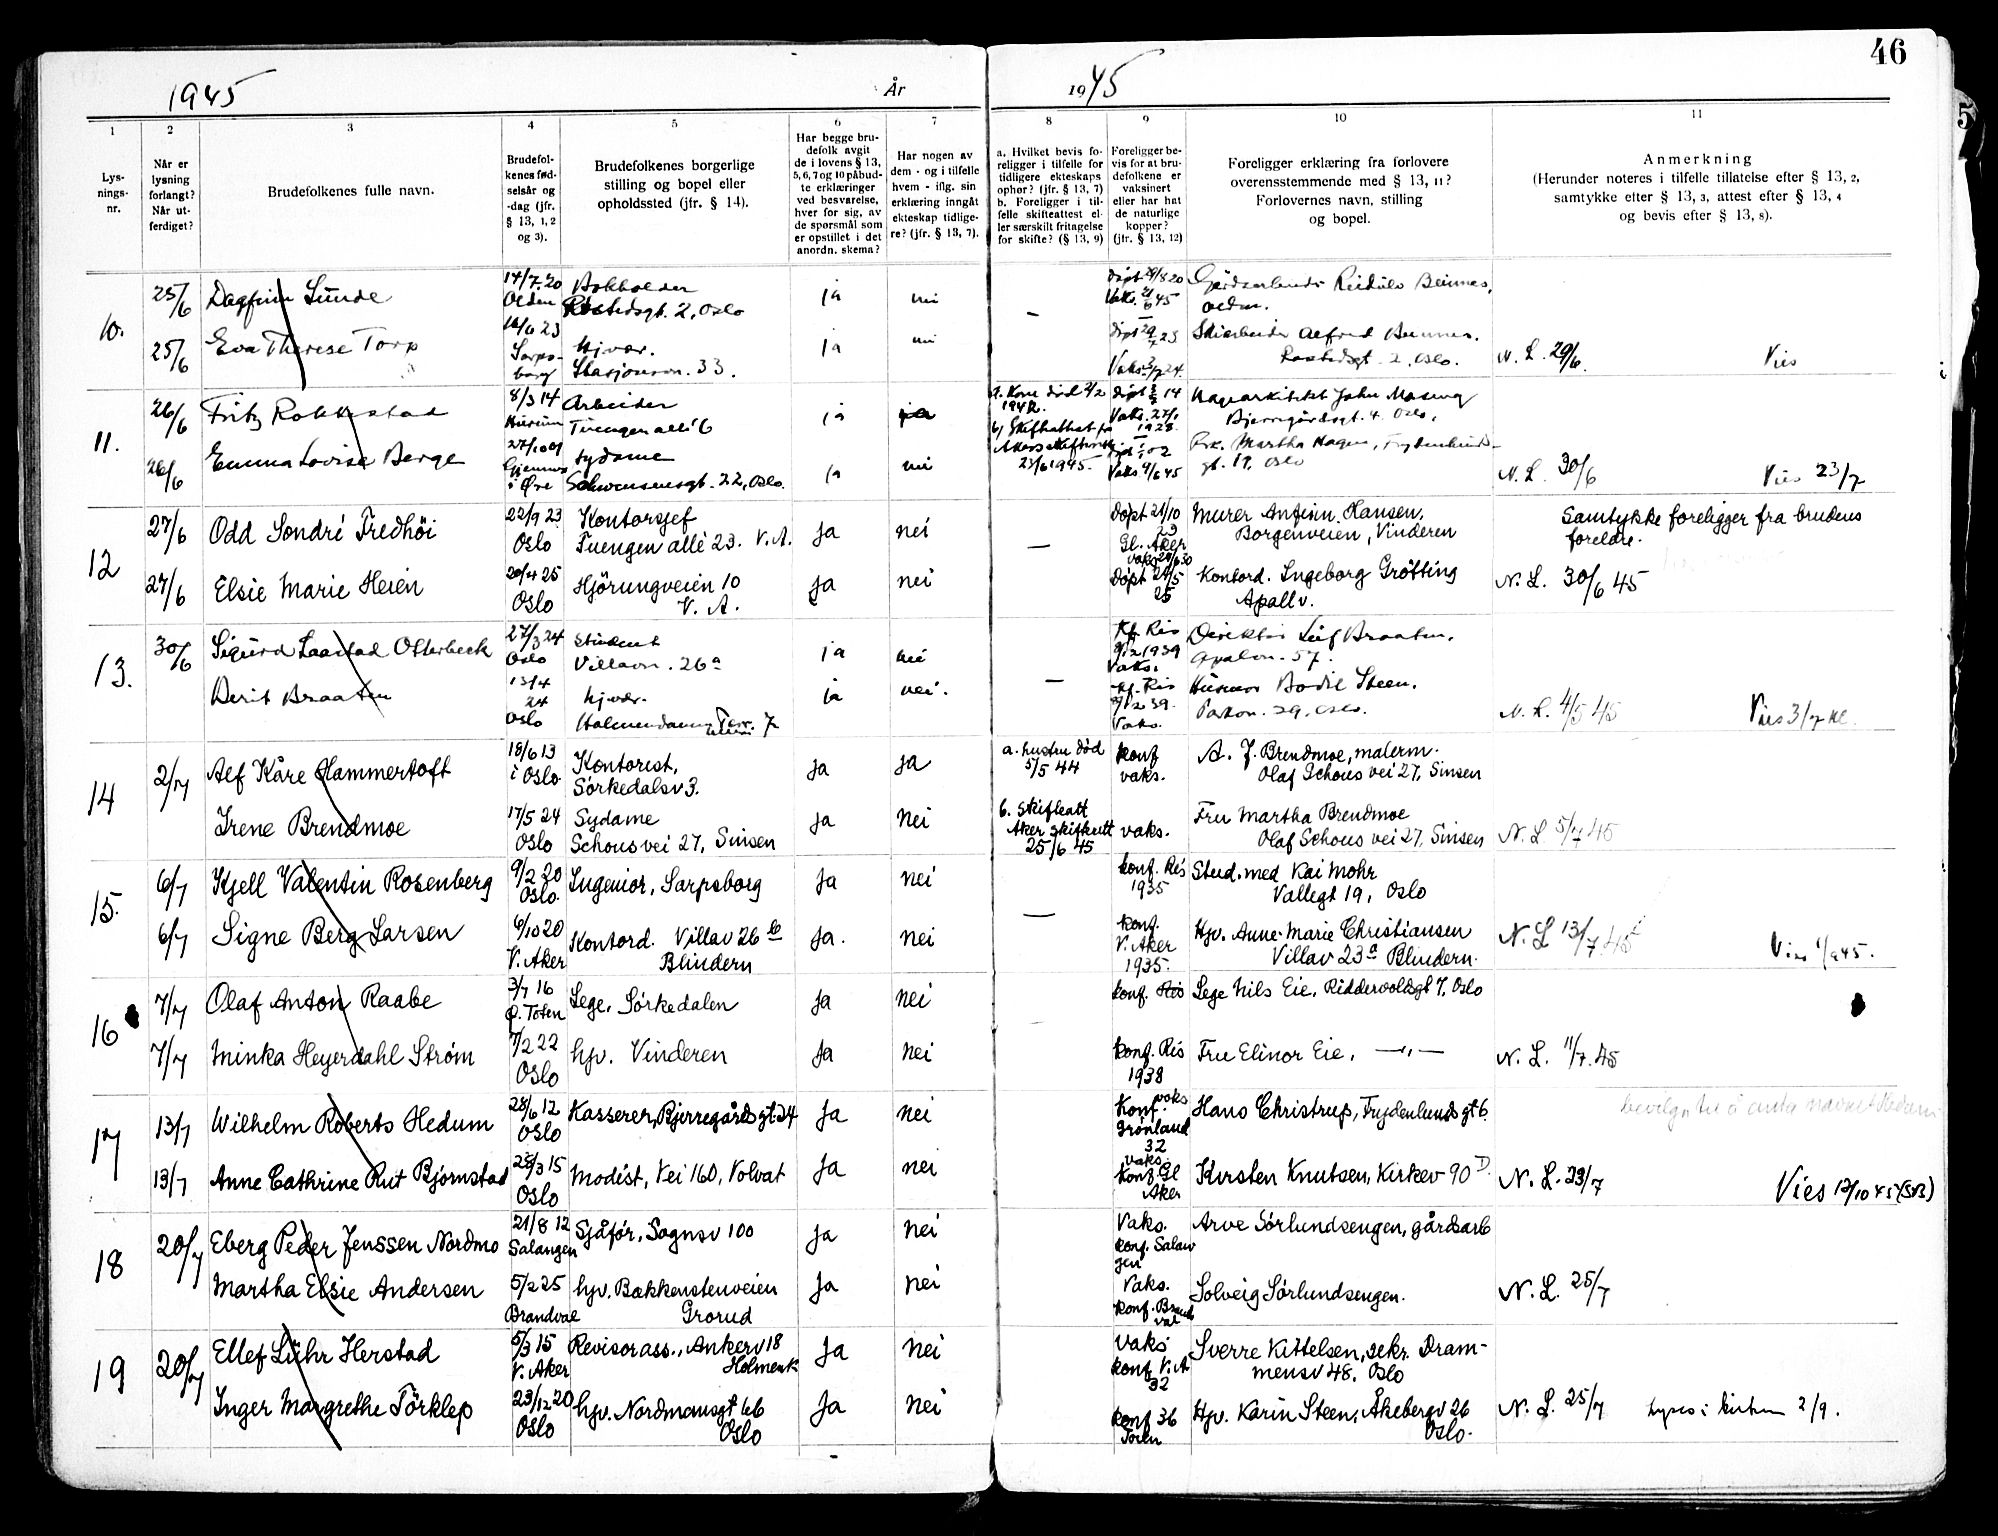 46
1945
År
1945
1
2
3
4
5
6
7
8
9
10
11
Lys-
nings-
nr.
Når er
lysning
forlangt?
Når ut-
ferdiget?
Brudefolkenes fulle navn.
Brudefol-
kenes fød-
selsår og
-dag (jfr.
§ 13, 1, 2
og 3).
Brudefolkenes borgerlige
stilling og bopel eller
opholdssted (jfr. § 14).
Har begge bru-
defolk avgit
de i lovens § 13,
5, 6, 7 og 10 påbud-
te erklæringer
ved besvarelse,
hver for sig, av
de spørsmål som
er opstillet i det
anordn. skema?
Har nogen av
dem - og i tilfelle
hvem - iflg. sin
erklæring inngått
ekteskap tidlige-
re? (jfr. § 13, 7).
a. Hvilket bevis fo-
religger i tilfelle for
tidligere ekteskaps
ophør? (jfr. § 13, 7)
b. Foreligger i til-
felle skifteattest el-
ler særskilt fritagelse
for skifte? (§ 13, 9)
Foreligger be-
vis for at bru-
defolkene er
vaksinert
eller har hat
de naturlige
kopper?
(jfr. § 13, 12)
Foreligger erklæring fra forlovere
overensstemmende med § 13, 11?
Forlovernes navn, stilling
og bopel.
Anmerkning
(Herunder noteres i tilfelle tillatelse efter § 13, 2,
samtykke efter § 13, 3, attest efter § 13, 4
og bevis efter § 13, 8).
10.
25/6
Dagfinn Sunde
14/7.20
Olden
Bokholder
Rostedsgt. 2, Oslo
ja
nei
—
Døpt 29/8 20
Vaks.
45
Reidulv Beinnes,
Olden.
25/6
Eva Therese Torp
23
Sarps-
borg
Hjvær.
Stasjonsvn. 33.
ja
nei
Døpt 29/7 23
Vaks. 3/7 24.
Alfred Beinnes.
Rostedsgt. 2, Oslo.
N. L. 29/6.
Vies
11.
26/6
Fritz Rokkestad
8/3 14
Hurum
Arbeider
Tuengen allé 6
ja
ja
a. Kone død 2/2
1942.
b) Skifteattest fra
Akers skifterett
23/6 1945.
Døpt 14
Vaks. 27/1
1928.
Hagearkitekt John
Bjerregårdsgt. 4. Oslo.
26/6
Emma Lovise Berge
27/10 09
i Øre
Sydame
Schwensensgt. 22, Oslo.
ja
nei
Vaks 9/6 45
Frk. Martha Hagen, Frydenlunds-
gt. 19, Oslo
N. L. 30/6
Vies 23/7
12
27/6
Odd Sondré Fredhöi
22/9 23
Oslo
Kontorsjef
Tuengen allé 23. V. A.
ja
nei
—
Døpt 21/10
23
Gl. Aker
Vaks 20/6 30
Murer Anfinn Hansen,
Borgenveien, Vinderen
Samtykke foreligger fra brudens
foreldre.
27/6
Elsie Marie Heien
20/4 25
Oslo
Hjörungveien 10
V. A.
ja
nei
Døpt 24/5
25
Kontord. Ingeborg Grötting
Apallv.
N. L. 30/6 45
13.
30/6
Sigurd Laastad Otterbeck
27/3 24
Oslo
Student
Villavn. 26a
ja
nei
—
Kf. Ris
3/12 1939
Vaks.
Direktør Leif Braaten.
Apalvn. 57.
Berit Braaten
13/4
24
Oslo
hjvær.
Holmendammen Terr. 7
ja
nei.
Kf. Ris
3/12 39.
Vaks.
Husmor Bodil Steen.
Parkvn. 29, Oslo.
N. L. 4/5 45
Vies 3/7 kl.
14
2/7
Alf Kåre Hammertoft
18/6 13
i Oslo
Kontorist,
Sörkedalsv 3.
ja
ja
a. hustru død
5/5 44
konf
vaks.
A. J. Brendmoe, malerm.
Olaf Schous vei 27, Sinsen
Irene Brendmoe
17/5 24
Oslo
Sydame
Schous vei 27, Sinsen
ja
nei
b. Skifteatt
Aker skifterett
25/6 45
vaks.
Fru Martha Brendmoe
Olaf Schous vei 27, Sinsen
N. L. 5/7 45
15.
6/7
Kjell Valentin Rosenberg
9/2 20
Oslo.
Ingeniør, Sarpsborg
ja
nei
—
konf. Ris
1935
Stud. med Kai Mohr
Vallegt 19, Oslo
6/7
Signe Berg Larsen
6/10 20
V. Aker
Kontord. Villav 26 b
Blindern
ja.
nei
konf.
V. Aker
1935.
Hjv. Anne-Marie Christiansen
Villav 23a Blindern.
N. L 13/7.45
Vies 1/9 45.
16
7/7
Olaf Anton Raabe
3/7 16
Ø. Toten
Lege, Sörkedalen
ja
nei
—
konf. Ris
Lege Nils Eie, Riddervoldsgt 7, Oslo
7/7
Minka Heyerdahl Strøm
7/2 22
Oslo
hjv. Vinderen
ja
nei
konf. Ris
1938
Fru Elinor Eie, —„—
N. L. 11/7.45
17
13/7
Wilhelm Roberts Hedum
28/6 12
Oslo
Kasserer, Bjerregårds gt. 24
ja
nei
Konf. vaks
Grønland
32
Hans Christrup, Frydenlunds gt 6.
bevilgn til å anta navnet Hedum
13/7
Anne Cathrine Rut Bjørnstad
28/3 15
Oslo
Modist, Vei 160, Volvat
ja
nei
vaks.
Konf. Gl
Aker
Kirsten Knutsen, Kirkev 90 D.
N. L. 23/7
Vies 12/10 45
18
20/7
Eberg Peder Jenssen Nordmo
21/8 12
Salangen
Sjåför, Sognsv 100
ja
nei
Vaks.
konf. Salan
gen
Arve Sørlundsengen, gårdsarb
Martha Elsie Andersen
5/2 25
Brandval
hjv. Bakkenstenveien
Grorud
ja
nei
Vaks.
konf. Brand
val
Solveig Sørlundsengen.
N. L. 25/7
19
20/7
Ellef Lühr Herstad
5/3 15
V. Aker
Revisorass., Ankerv 18
Holmenk
ja
nei
Vaks
konf V. A
32
Sverre Kittelsen, sekr. Dram-
mensv 48, Oslo
Inger Margrethe Törklep
23/12 20
Oslo
hjv. Nordmansgt 66
Oslo
ja
nei
konf 36
Hjv. Karin Steen, Åkebergv 26
Oslo.
N. L. 25/7
lyses i kirken 2/9.